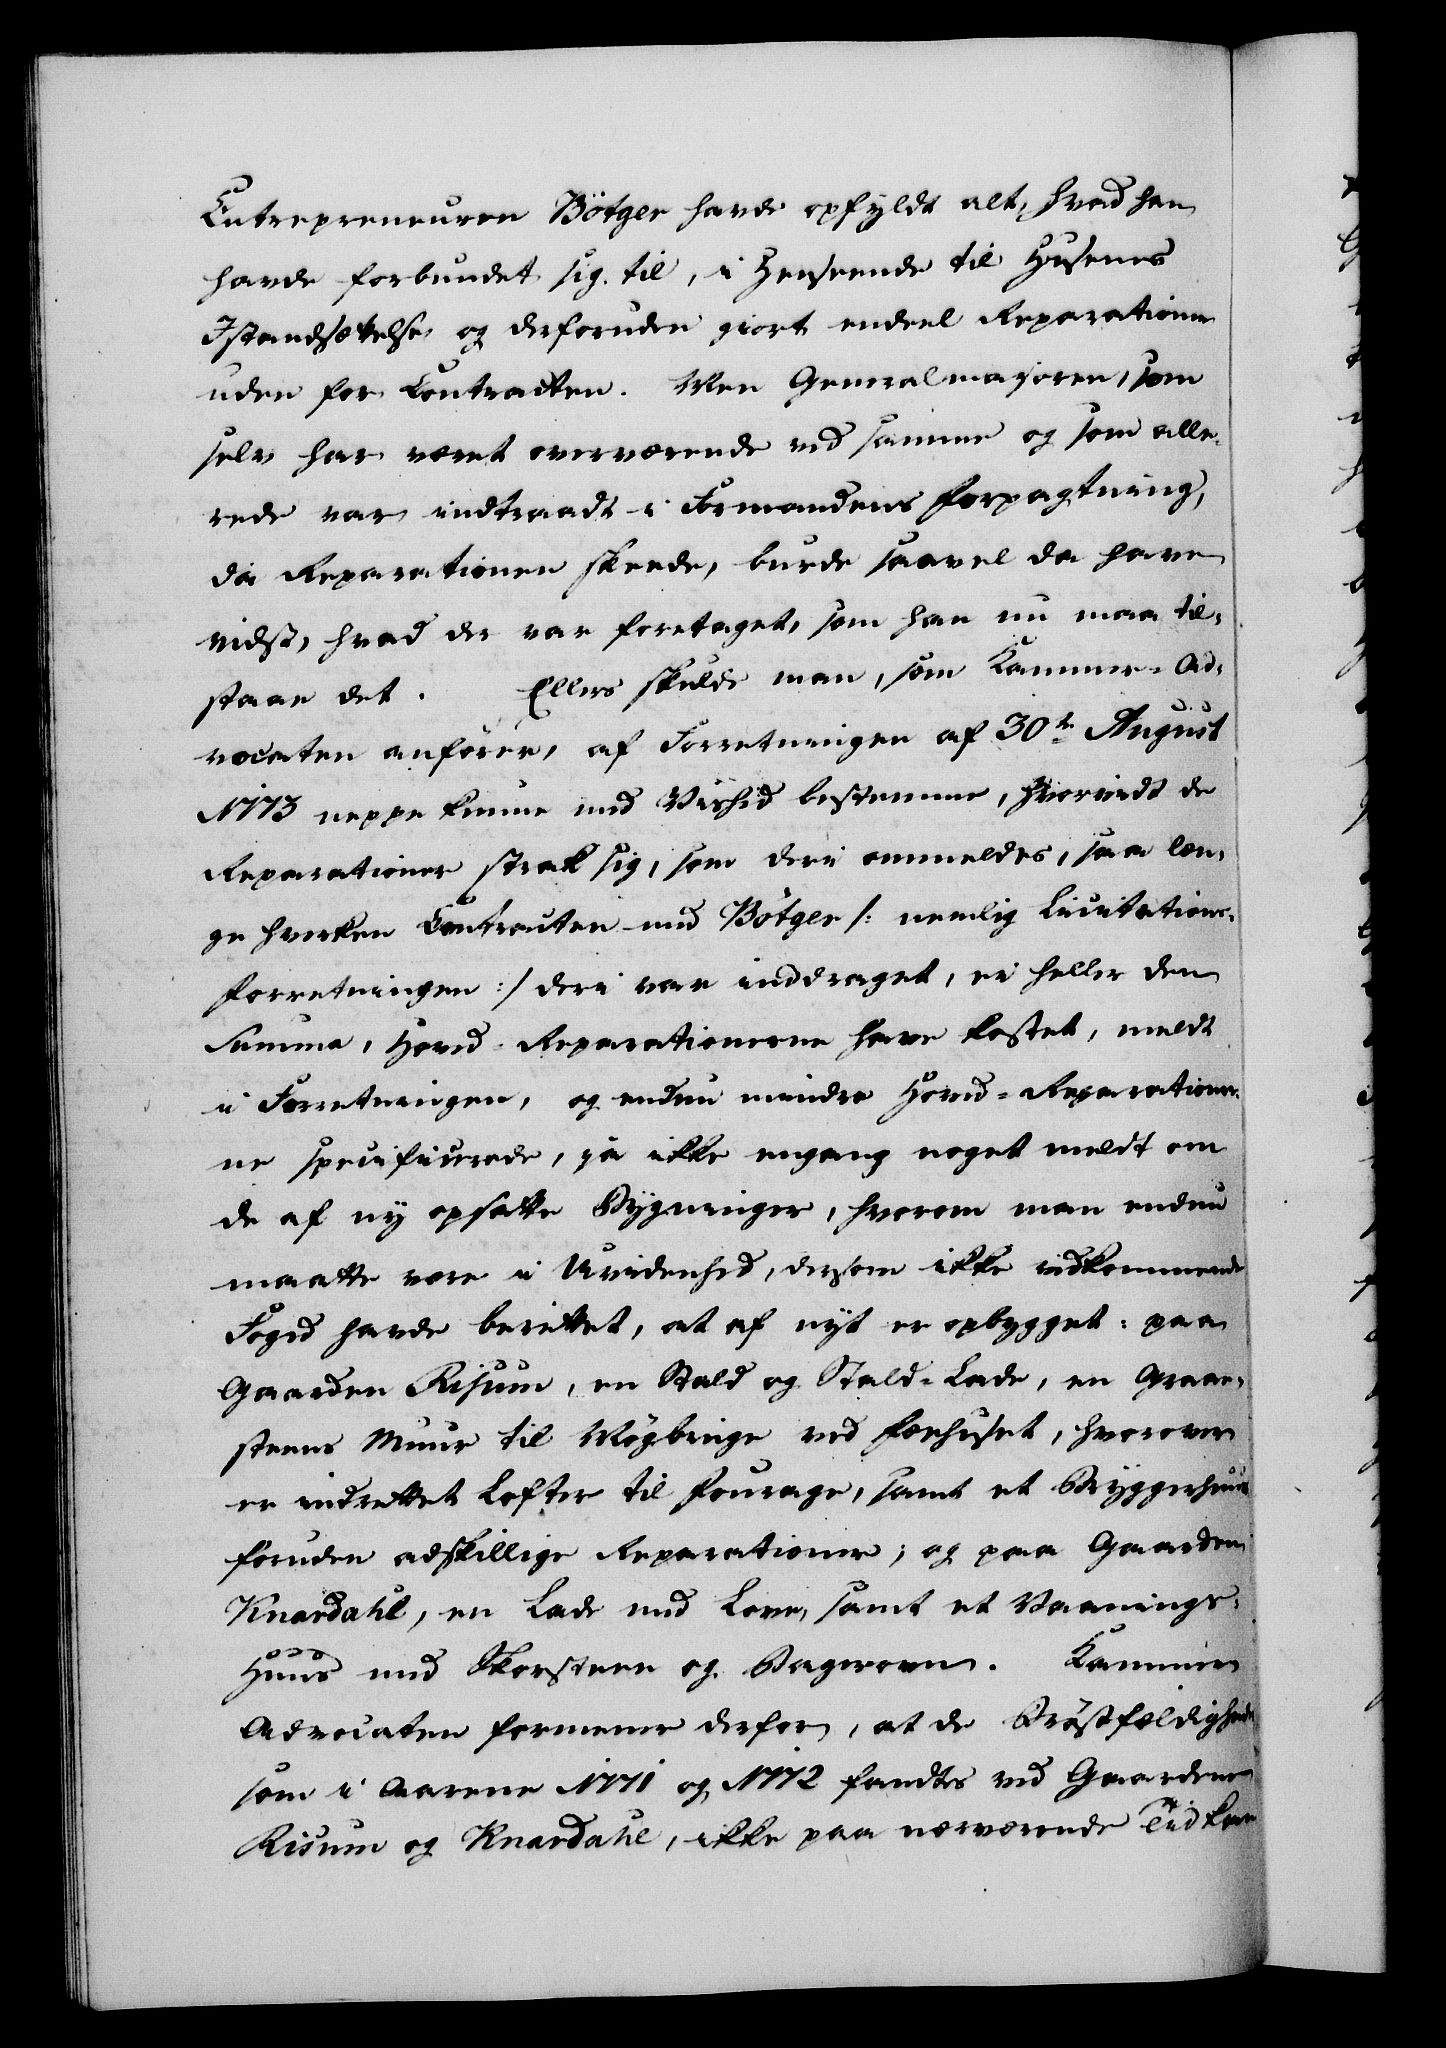 Entrepreneuren Bötger havde opfyldt alt, hvad han
havde forbundet sig til, i Henseende til Husenes
Istandsættelse og derforuden giort endeel Reparationer
uden for Contracten. Men Generalmajoren, som
selv har været overværende ved samme og som alle-
rede var indtraadt i Formandens Forpagtning,
da Reparationen skeede, burde saavel da have
vidst, hvad der var foretaget, som han nu maa til-
staae det. Ellers skulde man, som Kammer-Ad-
vocaten anfører, af Forretningen af 30te August
1773 neppe kunne med Vished bestemme, hvorvidt de
Reparationer strak sig, som deri ommeldes, saa læn-
ge hverken Contracten med Bötger /: nemlig Licitations-
forretningen :/ deri var inddraget, ei heller den
Summa, Hoved-Reparationerne have kostet, meldt
i Forretningen, og endnu mindre Hoved-Reparationer-
ne specificerede, ja ikke engang noget meldt om
de af ny opsatte Bygninger, hvorom man endnu
maatte være i Uvidenhed, dersom ikke vedkommende
Foged havde berettet, at af nyt er opbygget: paa
Gaarden Risum, en Stald og Stald-Lade, en Graae-
steens Muur til Møgbinge ved Fæehuset, hvorover
er indrettet Lofter til Fourage, samt et Bryggerhuus
foruden adskillige Reparationer; og paa Gaarden
Knardahl, en Lade med Love, samt et Vaanings-
Huus med Skorsteen og Bagerovn. Kammer
Advocaten formener derfor, at de Brøstfældigheder
som i Aarene 1771 og 1772 fandtes ved Gaardene
Risum og Knardahl, ikke paa nærværende Tid kan